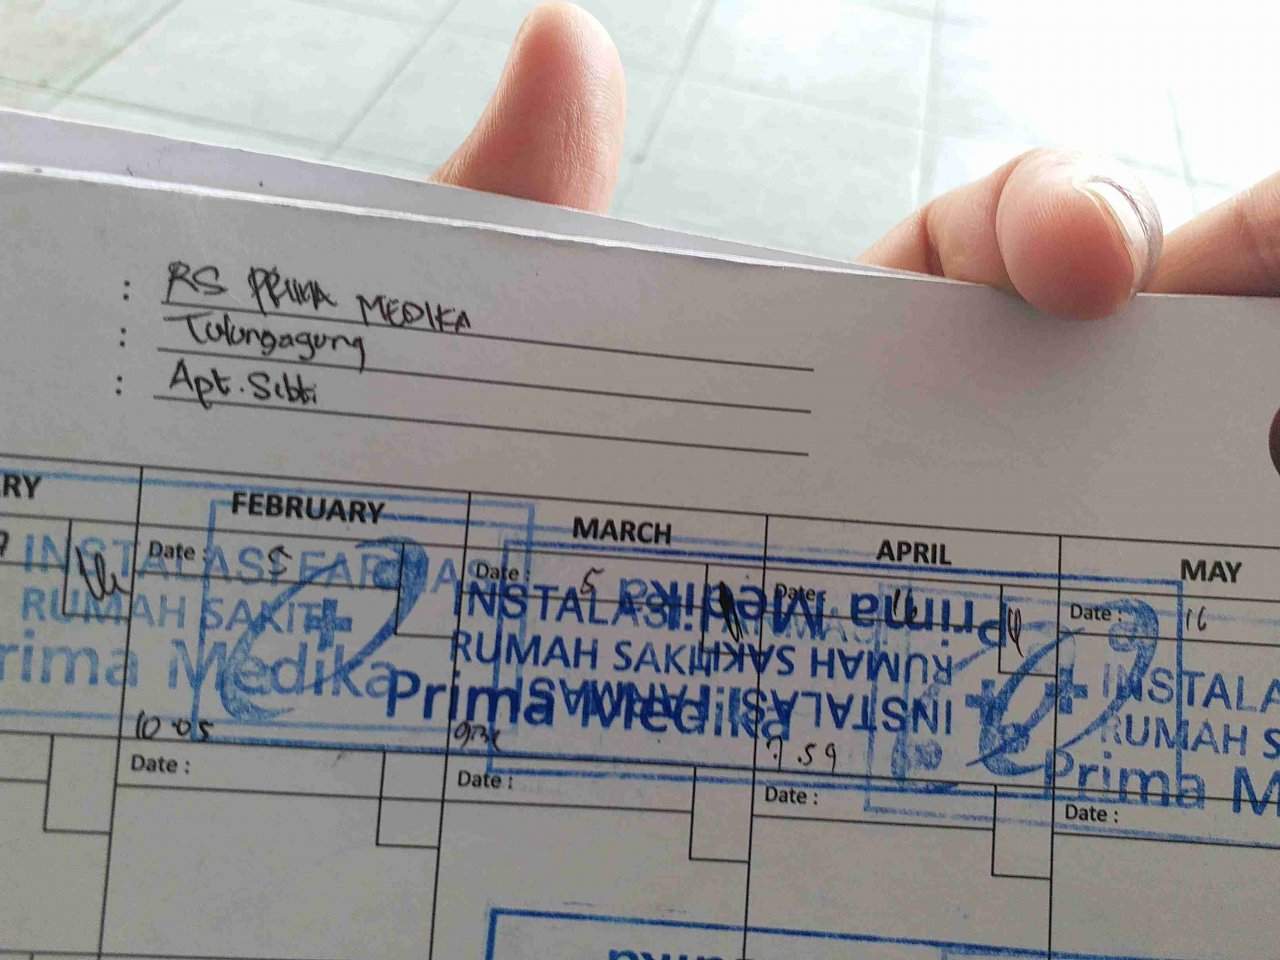 : RS PRIMA MEDIKA
: Tulungagung
: Apt. Sebti
RY FEBRUARY MARCH APRIL MAY
Date : 5 Date : 5 Date : Date : 16
INSTALASI FARMAS
RUMAH SAKIT
rima Medika
INSTALASI
RUMAH SAKIT
Prima Medika
Prima Medika
RUMAH SAKIT
INSTALASI FARMASI
INSTALA
RUMAH S
Prima M
10.05 7.59
Date : Date : Date : Date :